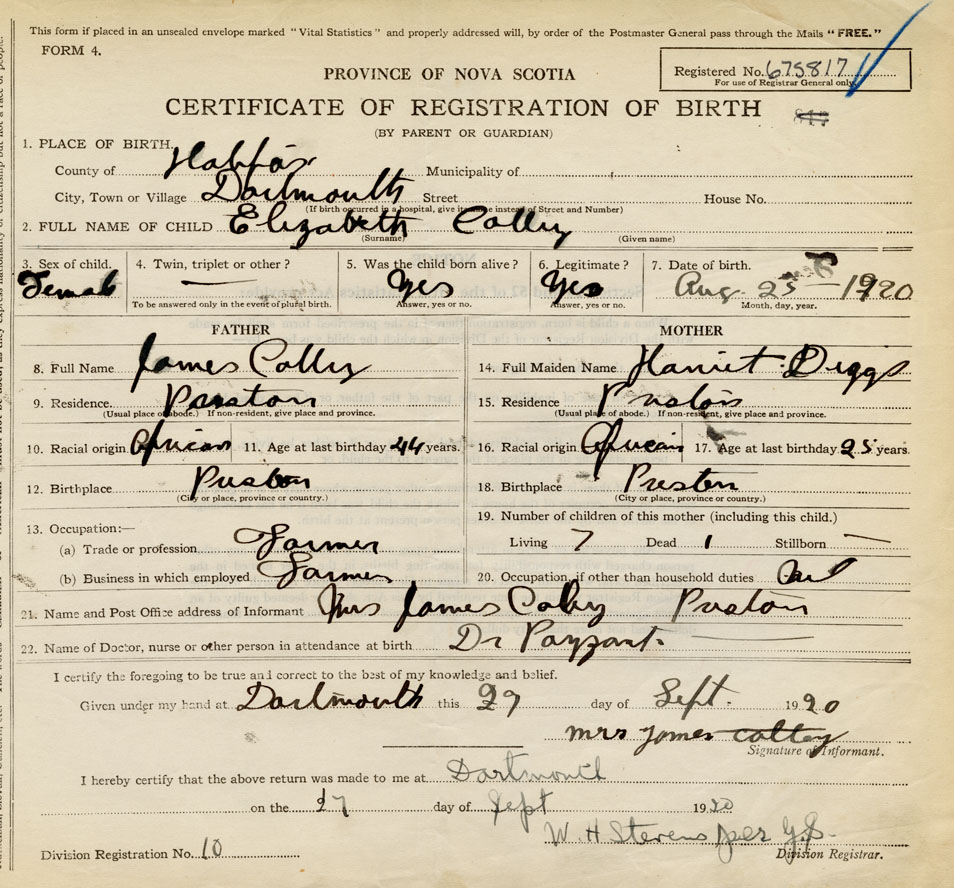 This form if placed in an unsealed envelope marked "Vital Statistics" and properly addressed will, by order of the Postmaster General pass through the Mails "FREE."
FORM 4.
Registered No. 675817
For use of Registrar General only
PROVINCE OF NOVA SCOTIA
CERTIFICATE OF REGISTRATION OF BIRTH
(BY PARENT OR GUARDIAN)
1. PLACE OF BIRTH.
County of Halifax Municipality of
City, Town or Village Dartmouth Street House No.
(If birth occurred in a hospital, give its name instead of Street and Number)
2. FULL NAME OF CHILD Elizabeth Colley
(Surname) (Given name)
3. Sex of child. 4. Twin, triplet or other? 5. Was the child born alive? 6. Legitimate? 7. Date of birth.
Female — Yes Yes Aug. 25 1920
To be answered only in the event of plural birth. Answer, yes or no. Answer, yes or no. Month, day, year.
FATHER MOTHER
8. Full Name James Colley 14. Full Maiden Name Harriet Diggs
9. Residence Preston 15. Residence Preston
(Usual place of abode.) If non-resident, give place and province. (Usual place of abode.) If non-resident, give place and province.
10. Racial origin African 11. Age at last birthday 44 years. 16. Racial origin African 17. Age at last birthday 25 years.
12. Birthplace Preston 18. Birthplace Preston
(City or place, province or country.) (City or place, province or country.)
13. Occupation:— 19. Number of children of this mother (including this child.)
(a) Trade or profession Farmer Living 7 Dead 1 Stillborn —
(b) Business in which employed Farmer 20. Occupation, if other than household duties
21. Name and Post Office address of Informant Mrs James Colley Preston
22. Name of Doctor, nurse or other person in attendance at birth Dr Payzant.
I certify the foregoing to be true and correct to the best of my knowledge and belief.
Given under my hand at Dartmouth this 27 day of Sept. 1920
mrs james colley
Signature of Informant.
I hereby certify that the above return was made to me at Dartmouth
on the 27 day of Sept 1920
W. H Stevens per G.S.
Division Registration No. 10 Division Registrar.